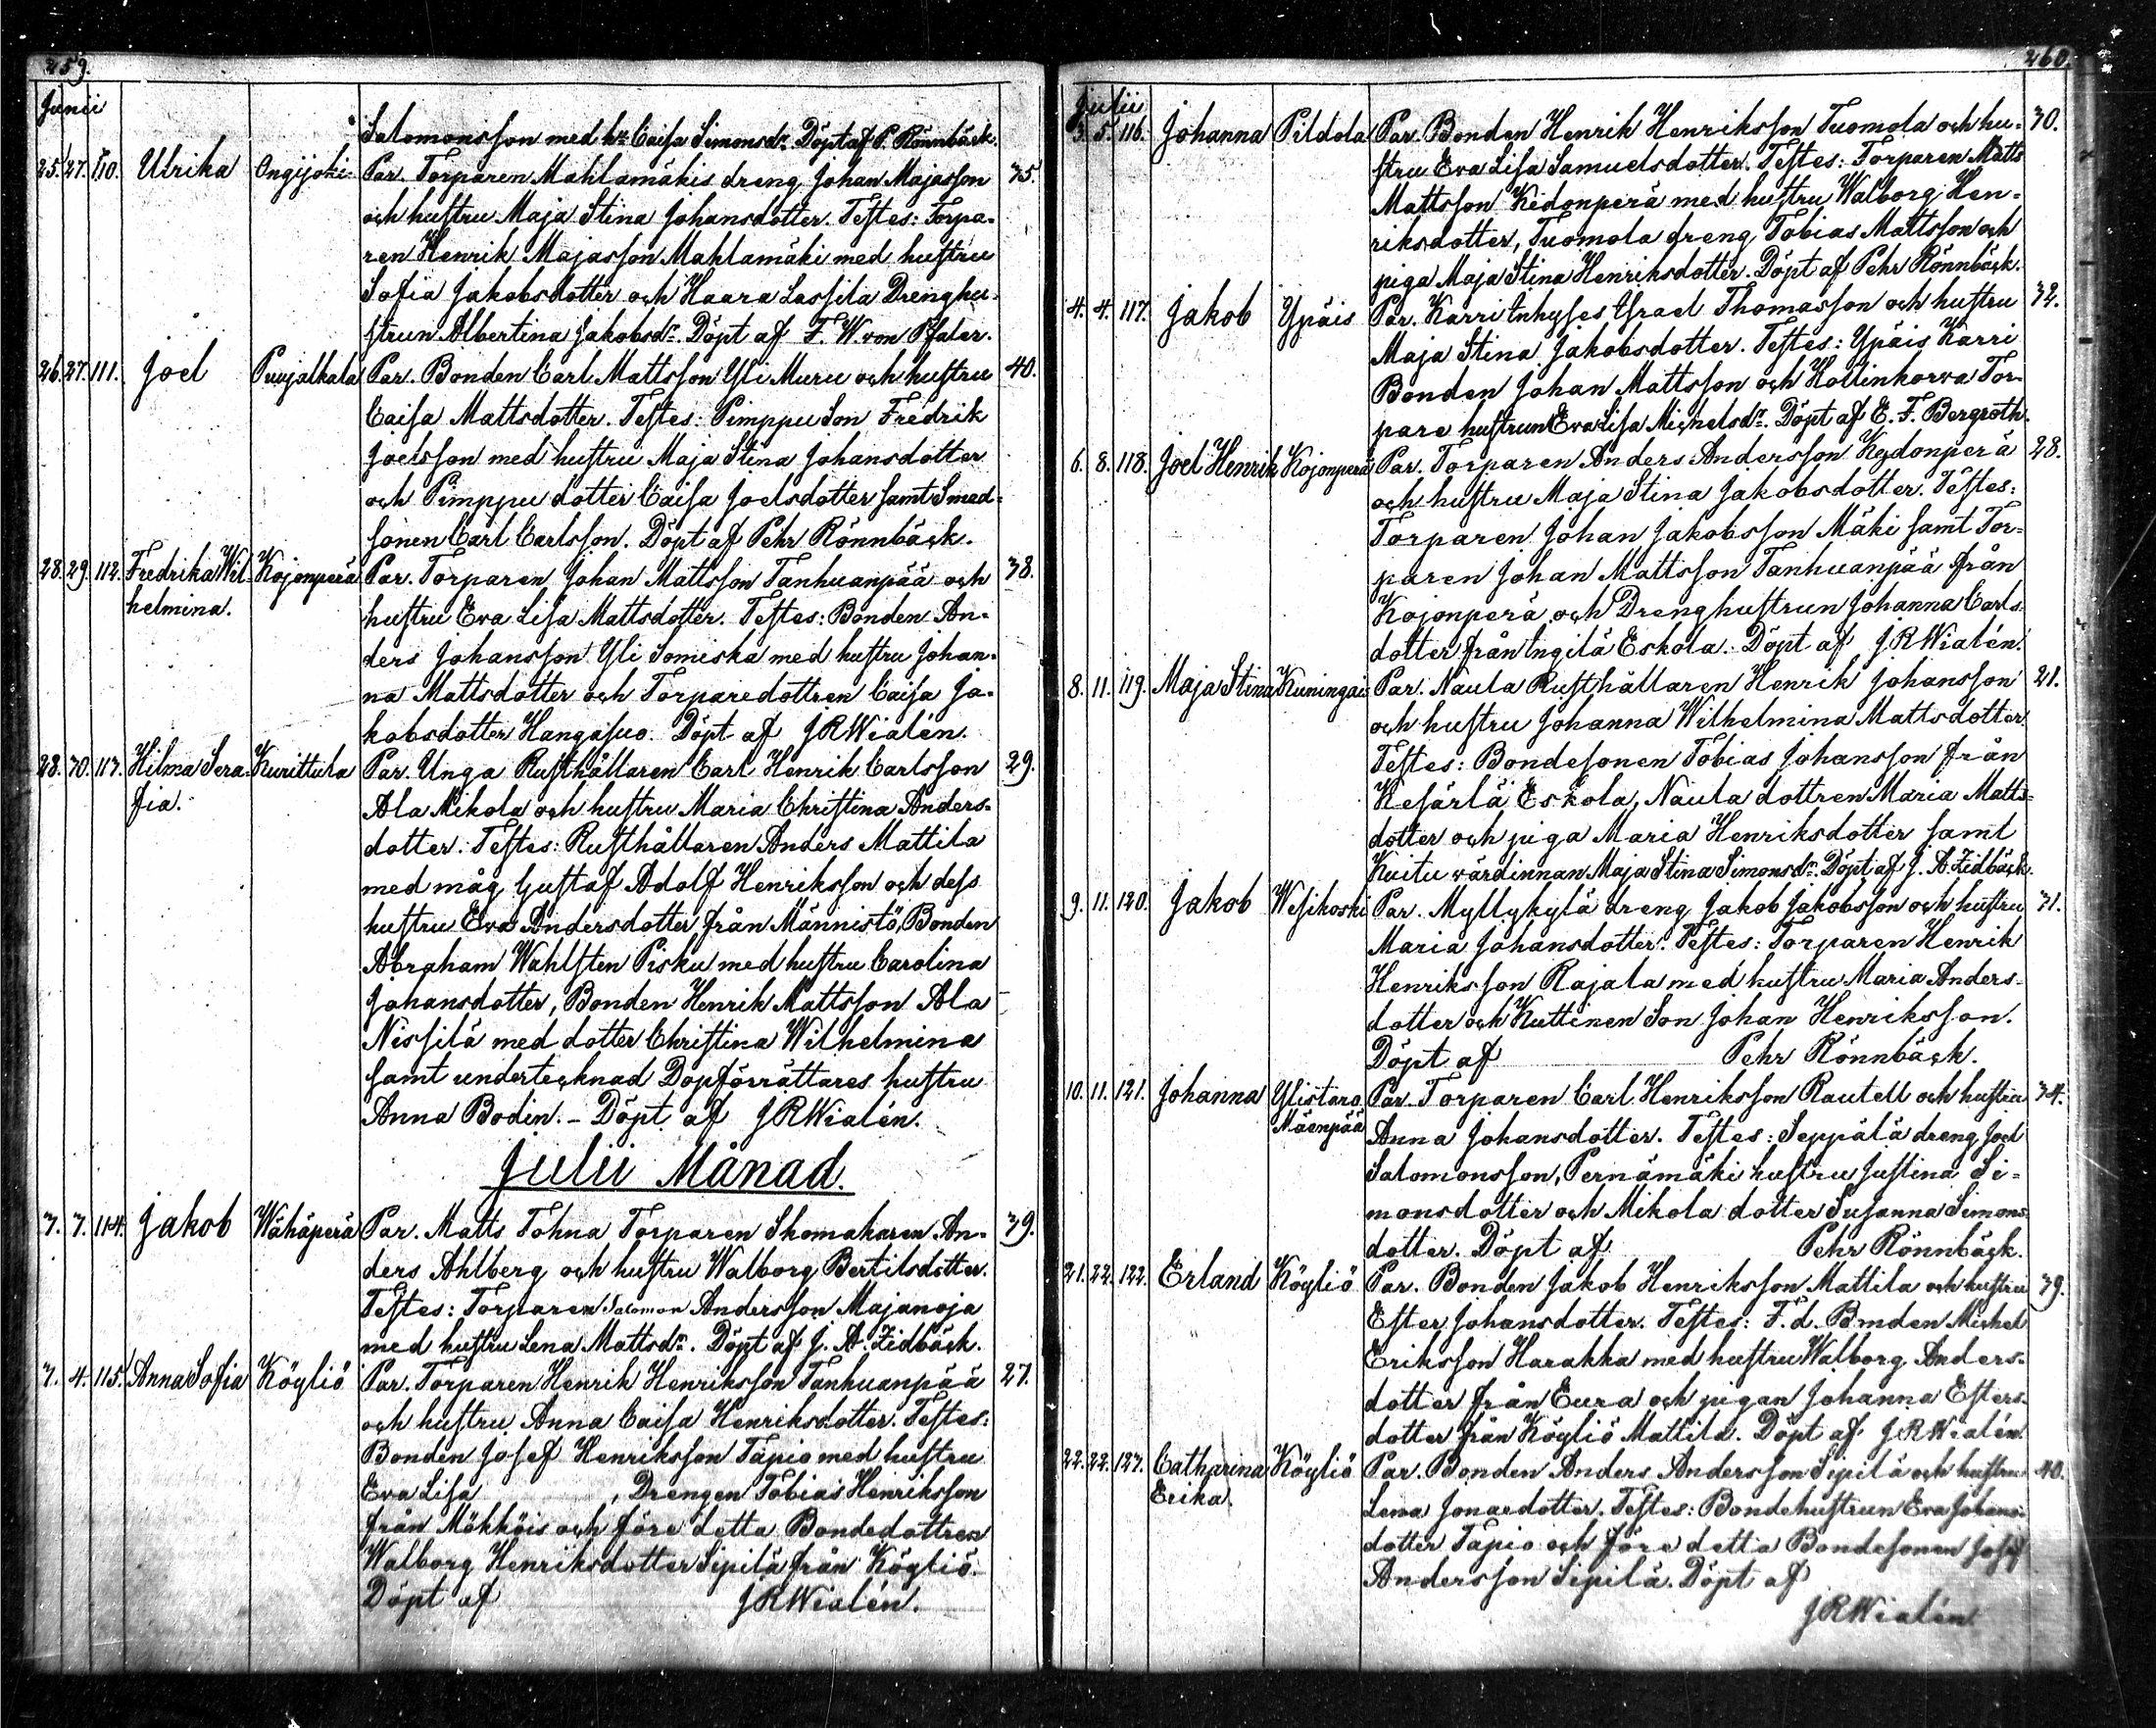 259.
Junii
Salomonsson med h:u Caisa Simonsd:r Döpt af P. Rönnbäck.
25. 27. 110. Ulrika Ongijoki Par. Torparen Mahlamäkis dreng Johan Majasson 35.
och hustru Maja Stina Johansdotter. Testes: Torpa-
ren Henrik Majasson Mahlamäki med hustru
Sofia Jakobsdotter och Haara Lassila Drenghu-
strun Albertina Jakobsd:r. Döpt af F. W. von Pfaler.
26. 27. 111. Joel Puujalkala Par. Bonden Carl Mattsson Yli Muru och hustru 40.
Caisa Mattsdotter. Testes: Pimppu Son Fredrik
Joelsson med hustru Maja Stina Johansdotter
och Pimppu dotter Caisa Joelsdotter samt Smed-
sonen Carl Carlsson. Döpt af Pehr Rönnbäck.
28. 29. 112. Fredrika Wil- Kojonperä Par. Torparen Johan Mattsson Tanhuanpää och 38.
helmina. hustru Eva Lisa Mattsdotter. Testes: Bonden An-
ders Johansson Yli Somiska med hustru Johan-
na Mattsdotter och Torparedottren Caisa Ja-
kobsdotter Hangasuo. Döpt af J R Wialén.
28. 30. 113. Hilma Sera- Kurittula Par. Unga Rusthållaren Carl Henrik Carlsson 29.
fia. Ala Mikola och hustru Maria Christina Anders-
dotter. Testes: Rusthållaren Anders Mattila
med måg Gustaf Adolf Henriksson och dess
hustru Eva Andersdotter från Männistö, Bonden
Abraham Wahlsten Pisku med hustru Carolina
Johansdotter, Bonden Henrik Mattsson Ala
Nissilä med dotter Christina Wilhelmina
samt undertecknad Dopförrättares hustru
Anna Bodin. – Döpt af J R Wialén.
Julii Månad.
3. 3. 114. Jakob Wähäperä Par. Matts Tohna Torparen Skomakaren An- 39.
ders Ahlberg och hustru Walborg Bertilsdotter.
Testes: Torparen Salomon Andersson Majanoja
med hustru Lena Mattsd:r. Döpt af J. A. Lidbäck.
3. 4. 115. Anna Sofia Köyliö Par. Torparen Henrik Henriksson Tanhuanpää 27.
och hustru Anna Caisa Henriksdotter. Testes:
Bonden Josef Henriksson Tapio med hustru
Eva Lisa , Drengen Tobias Henriksson
från Mökköis och före detta Bondedottren
Walborg Henriksdotter Sipilä från Köyliö.
Döpt af J R Wialén.
260.
Julii
3. 5. 116. Johanna Pildola Par. Bonden Henrik Henriksson Tuomola och hu- 30.
stru Eva Lisa Samuelsdotter. Testes: Torparen Matts
Mattsson Kedonperä med hustru Walborg Hen-
riksdotter, Tuomola dreng Tobias Mattsson och
piga Maja Stina Henriksdotter. Döpt af Pehr Rönnbäck.
4. 4. 117. Jakob Ypäis Par. Karri Inhyses Israel Thomasson och hustru 32.
Maja Stina Jakobsdotter. Testes: Ypäis Karri
Bonden Johan Mattsson och Hollinkorva Tor-
pare hustrun Eva Lisa Michelsd:r. Döpt af E. F. Bergroth.
6. 8. 118. Joel Henrik Kojonperä Par. Torparen Anders Andersson Kedonperä 28.
och hustru Maja Stina Jakobsdotter. Testes:
Torparen Johan Jakobsson Mäki samt Tor-
paren Johan Mattsson Tanhuanpää från
Kojonperä och Drenghustrun Johanna Carls-
dotter från Ingilä Eskola. Döpt af J R Wialén.
8. 11. 119. Maja Stina Kuningais Par. Naula Rusthållaren Henrik Johansson 21.
och hustru Johanna Wilhelmina Mattsdotter.
Testes: Bondesonen Tobias Johansson från
Kesärlä Eskola, Naula dottren Maria Matts-
dotter och piga Maria Henriksdotter samt
Kuitu värdinnan Maja Stina Simonsd:r. Döpt af J. A. Lidbäck.
9. 11. 120. Jakob Wesikoski Par. Myllykylä dreng Jakob Jakobsson och hustru 31.
Maria Johansdotter. Testes: Torparen Henrik
Henriksson Rajala med hustru Maria Anders-
dotter och Kuttinen Son Johan Henriksson.
Döpt af Pehr Rönnbäck.
10. 11. 121. Johanna Ylistaro Par. Torparen Carl Henriksson Rautell och hustru 34.
Mäenpää Anna Johansdotter. Testes: Seppälä dreng Joel
Salomonsson, Pernämäki hustru Justina Si-
monsdotter och Mikola dotter Susanna Simons-
dotter. Döpt af Pehr Rönnbäck.
21. 22. 122. Erland Köyliö Par. Bonden Jakob Henriksson Mattila och hustru 39.
Ester Johansdotter. Testes: F. d. Bonden Michel
Eriksson Harakka med hustru Walborg Anders-
dotter från Eura och pigan Johanna Esters-
dotter från Köyliö Mattila. Döpt af J R Wialén
22. 22. 123. Catharina Köyliö Par. Bonden Anders Andersson Sipilä och hustru 40.
Erika. Lena Jonaedotter. Testes: Bondehustrun Eva Johans-
dotter Tapio och före detta Bondesonen Josef
Andersson Sipilä. Döpt af
J R Wialén